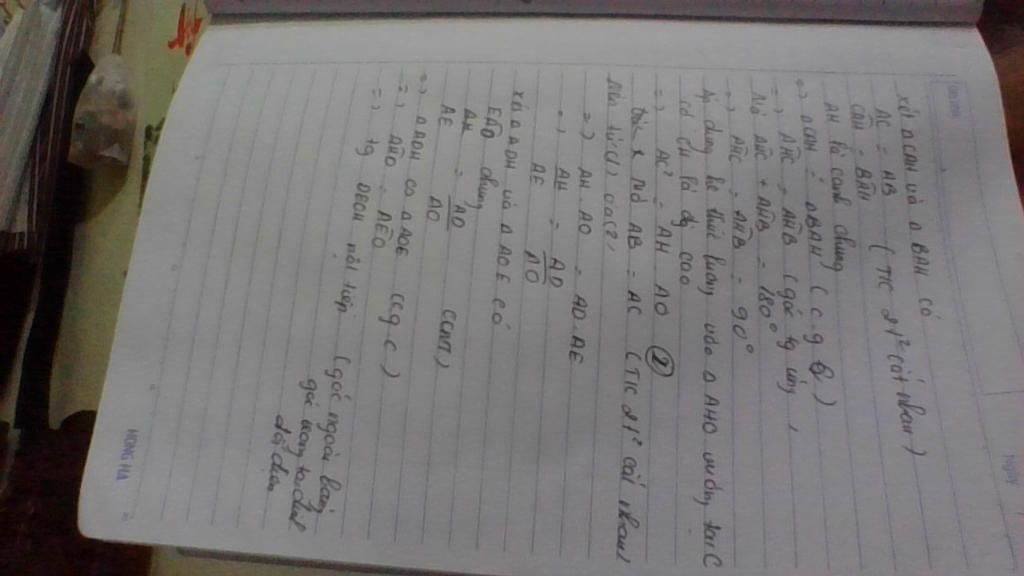 Ngày
xét △CAH và △BAH có
AC = AB ( T/C 2 t² cắt nhau )
CÂH = BÂH
AH là cạnh chung
=> △CAH = △BAH ( c.g.c )
=> AĤC = AĤB ( góc tg ứng )
Mà AĤC + AĤB = 180°
=> AĤC = AĤB = 90°
Áp dụng hệ thức lượng vào △AHO vuông tại C
có CH là đg cao
=> AC² = AH AO (2)
Mà AB = AC ( T/C 2 t² cắt nhau )
Nên từ (1) và (2)
=> AH . AO = AD . AE
=> AH / AE = AD / AO
xét △ADH và △AOE có
EÂO chung
AH / AE = AD / AO (CMT)
=> △ADH ∽ △AOE (c.g.c)
=> AĤD = AÊO
=> tg DEOH nội tiếp ( góc ngoài bằng
góc trong tại đỉnh
đối diện
HONG HA